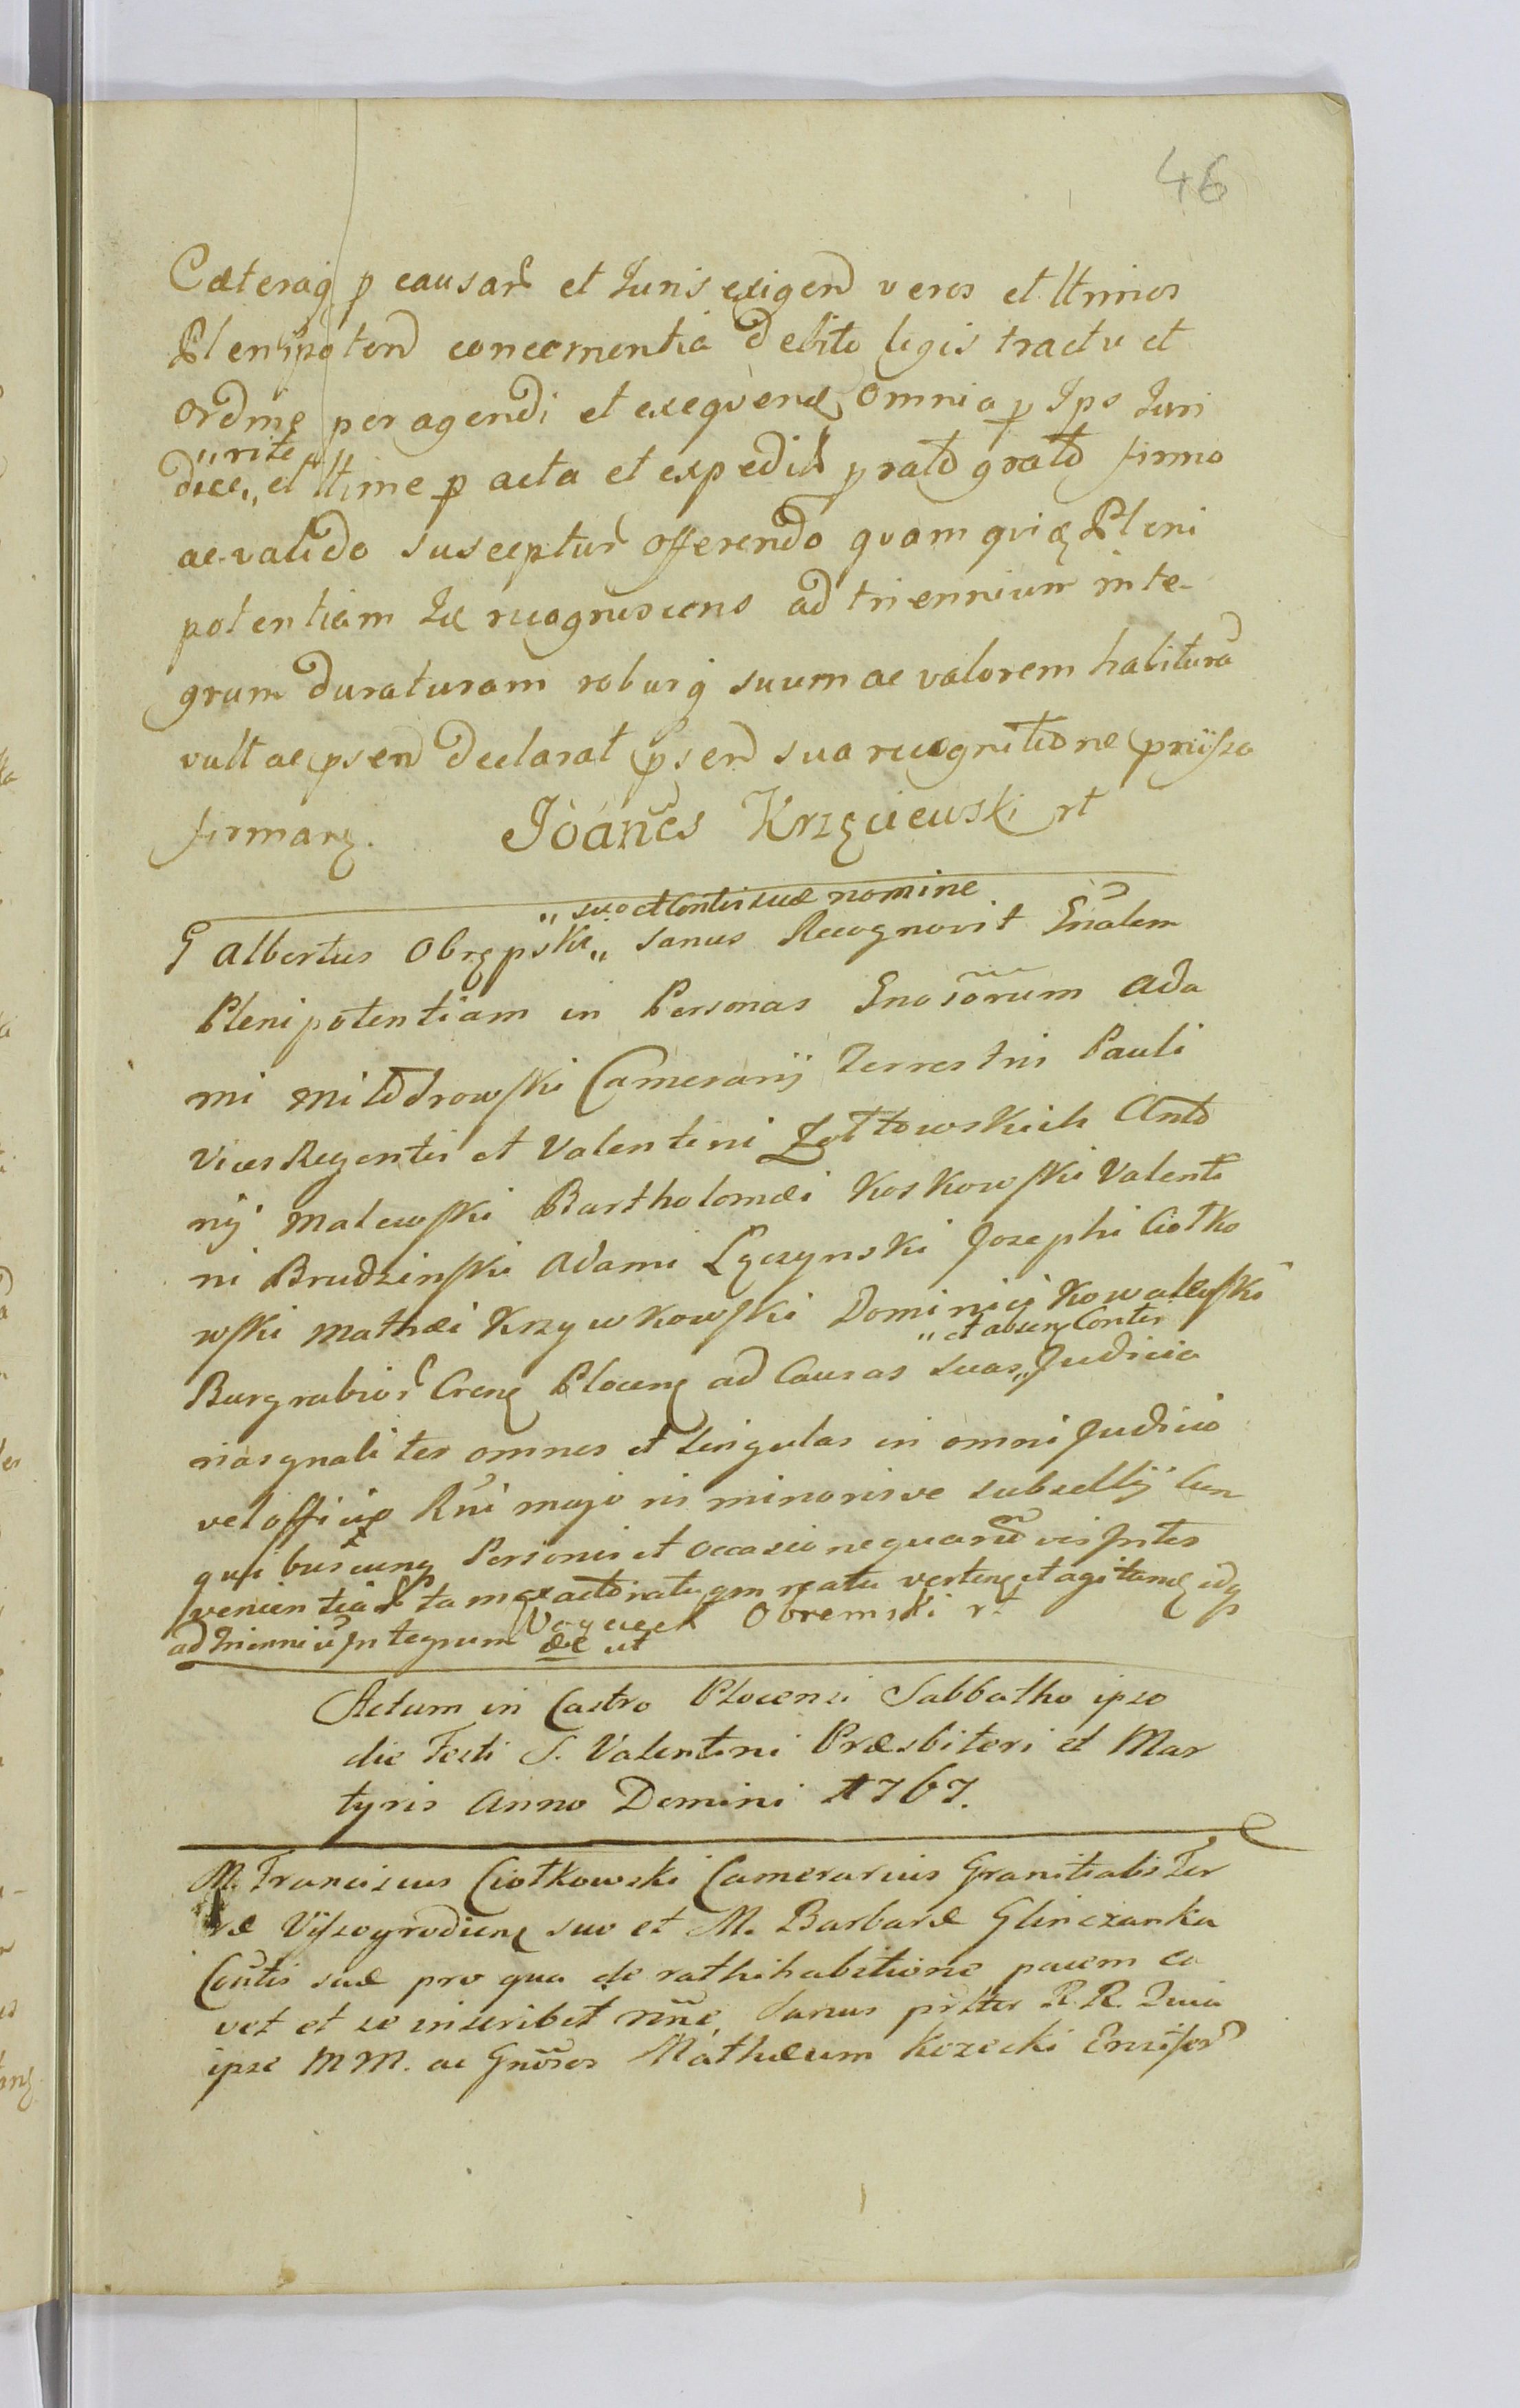 46
Cæteraq p causar et Juris exigend veros et lttimos
Plenipotend concernentia debito legis tractu et
ordine peragendi et exequend omnia p Ips Juri
dice „rite„ et lttime p acta et expedit p rato grato firmo
ac valido susceptur offerendo quam quid Pleni
potentiam Idē recognoscens ad triennium inte-
grum duraturam roburq suum ac valorem habitura
vult ac psen declarat psen sua recognitione priissa
firmang. Joañes Krzęciewski rt
G Albertus Obrępski „suo et Contis suæ nomine„ Sanus Recognovit Gñalem
Plenipotentiam in Personas Gnosorum Ada
mi Milodrowski Camerarij Terrestris Pauli
Vices Regentis et Valentini Zołtowskich Anto
nij Malewski Bartholomæi Koskowski Valenti
ni Brudzinski Adami Łączynski Josephi Ciołko
wski Mathæi Krzywkowski Dominici Kowalewski
Burgrabior Crens Plocens ad Causas suas „et absens Contis„ Judicia
riasqualiter omnes et singulas in omni Judicio
vel officio Rñi majoris minorisve subsellij cum
quibuscunq Personis et occasione quarumvis Intes
venientiar tam ex actoratu qm reatu vertens et agitand idq
ad Trienniũ Integrum &c ut Woyciech Obremski rt
Actum in Castro Plocensi Sabbatho ipso
die Festi S. Valentini Præsbiteri et Mar
tyris Anno Domini 1767.
M. Franciscus Ciołkowski Camerarius Granitialis Ter
ræ Vyszogrodiens suo et M. Barbaræ Glinczanka
Coñtis suæ pro qua de rathihabitione pacem ca
vet et se inscribet nñe, Sanus prtter R. R. Quia
ipse M M. ac Gnõsos Mathæum Kozecki Ensifer